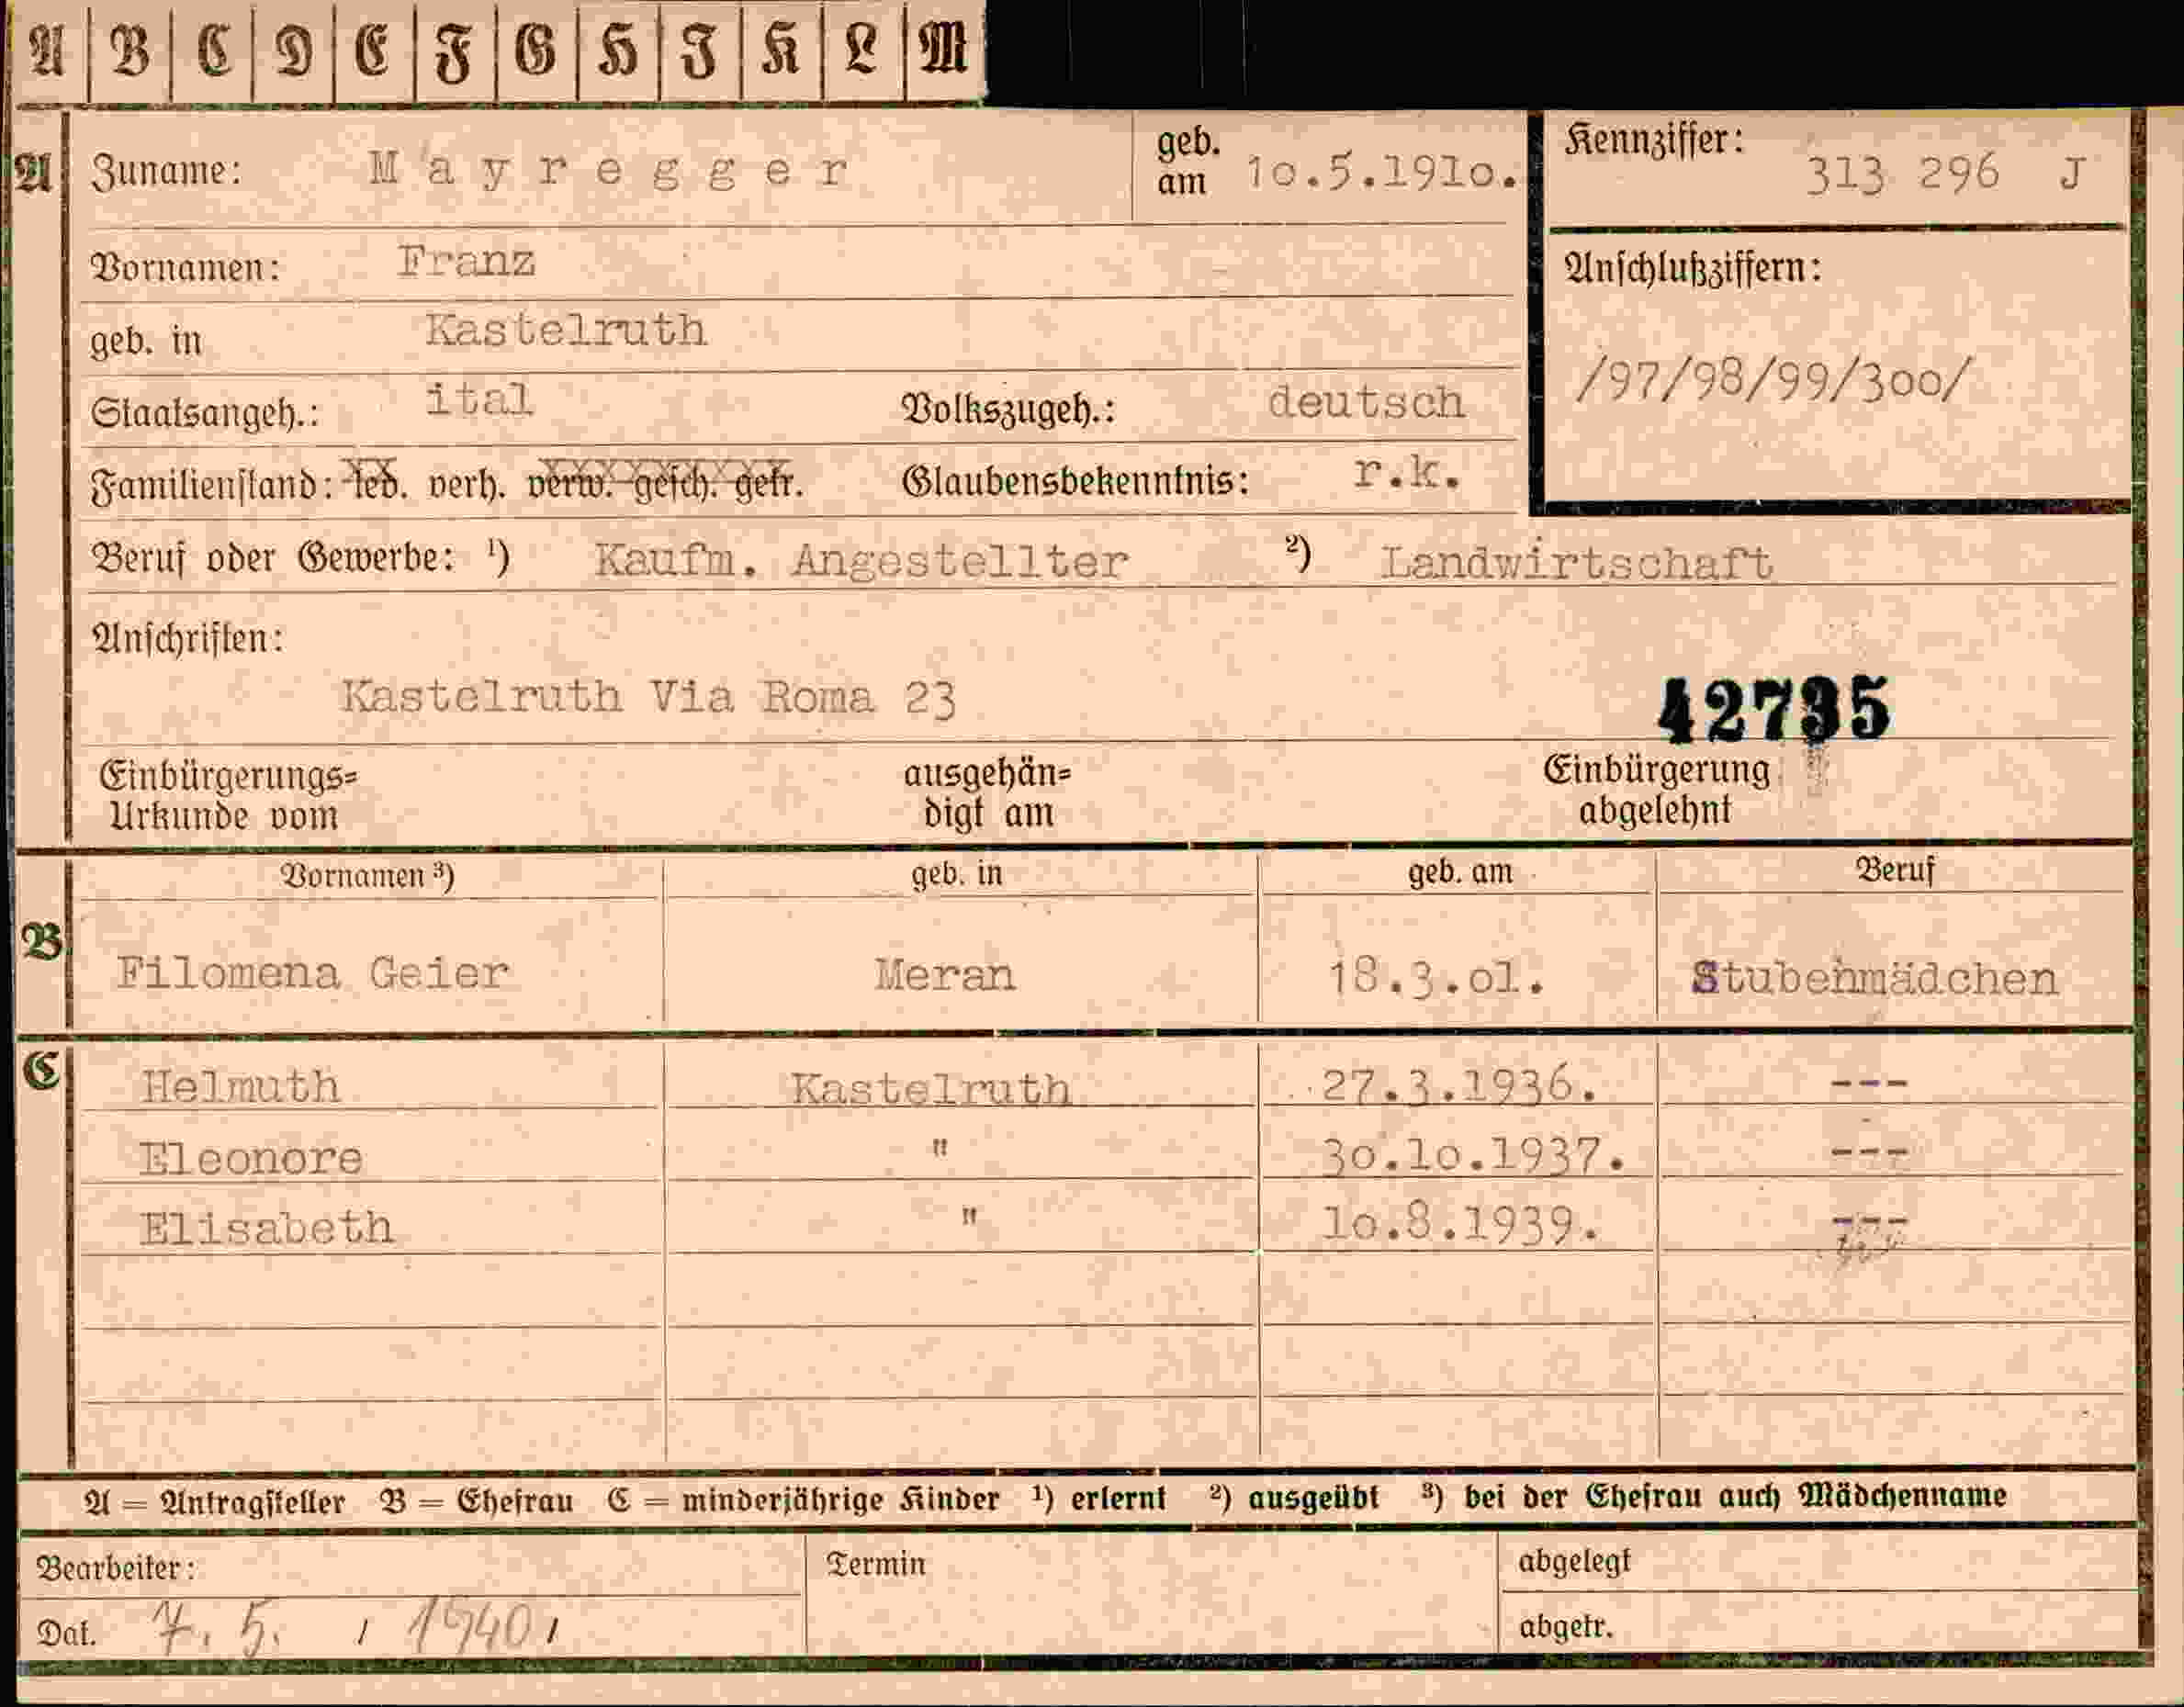 A B C D E F G H I K L M
A Zuname: Mayregger geb. am 1o.5.191o. Kennziffer: 313 296 J
Vornamen: Franz Anschlußziffern:
geb. in Kastelruth /97/98/99/3oo/
Staatsangeh.: ital Volkszugeh.: deutsch
Familienstand: led. verh. verw. gesch. getr. Glaubensbekenntnis: r.k.
Beruf oder Gewerbe: ¹) Kaufm. Angestellter ²) Landwirtschaft
Anschriften:
Kastelruth Via Roma 23 42735
Einbürgerungs= ausgehän= Einbürgerung
Urkunde vom digt am abgelehnt
Vornamen ³) geb. in geb. am Beruf
B Filomena Geier Meran 18.3.o1. Stubenmädchen
C Helmuth Kastelruth 27.3.1936. ---
Eleonore " 3o.1o.1937. ---
Elisabeth " 1o.8.1939. ---
A = Antragsteller B = Ehefrau C = minderjährige Kinder ¹) erlernt ²) ausgeübt ³) bei der Ehefrau auch Mädchenname
Bearbeiter: Termin abgelegt
Dat. 7. 5. 1940 abgetr.